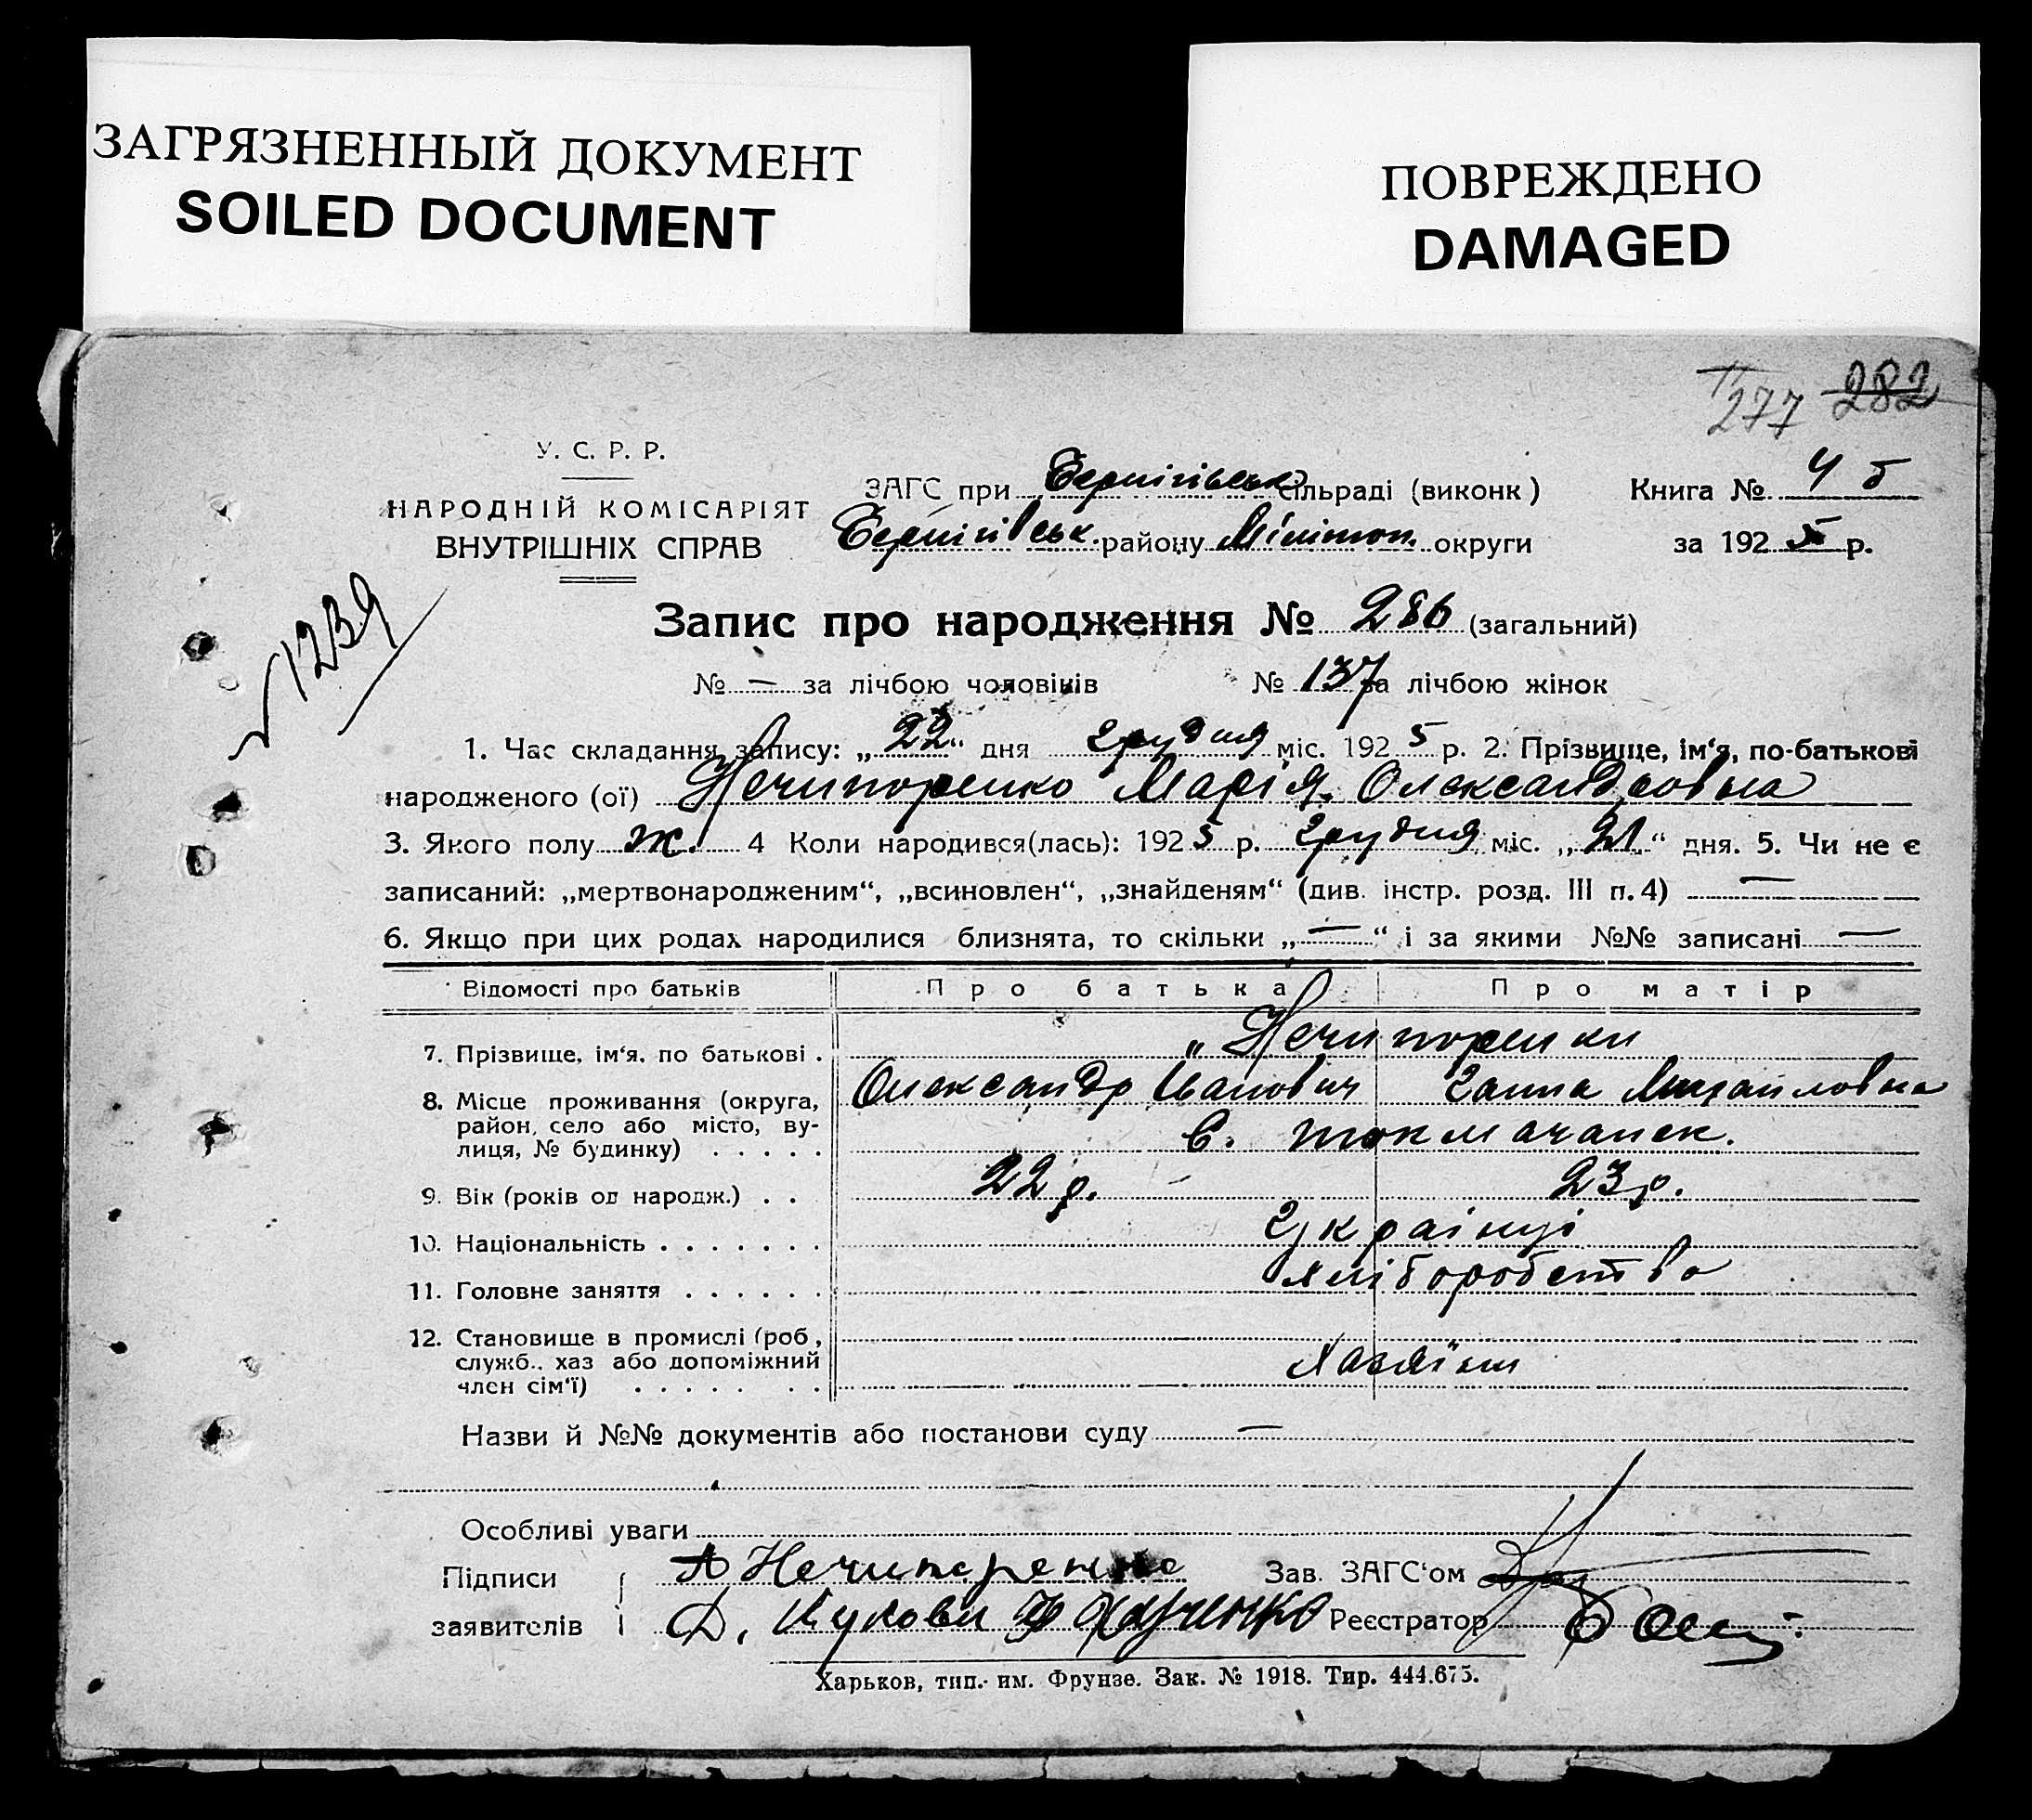 ЗАГРЯЗНЕННЫЙ ДОКУМЕНТ
SOILED DOCUMENT
ПОВРЕЖДЕНО
DAMAGED
277 282
У. С. Р. Р.
НАРОДНІЙ КОМІСАРІЯТ
ВНУТРІШНІХ СПРАВ
ЗАГС при Чернігівськ сільраді (виконк) Книга № 4 б
Чернігівськ. району Мелітоп. округи за 1925 р.
1239
Запис про народження № 286 (загальний)
№ — за лічбою чоловіків № 137 за лічбою жінок
1. Час складання запису: „22“ дня грудня міс. 1925 р. 2. Прізвище, ім‘я, по-батькові
народженого (ої) Нечипоренко Марія Олександровна
3. Якого полу ж. 4 Коли народився(лась): 1925 р. грудня міс. „21“ дня. 5. Чи не є
записаний: „мертвонародженим“, „всиновлен“, „знайденям“ (див. інстр. розд. III п. 4) —
6. Якщо при цих родах народилися близнята, то скільки „—“ і за якими №№ записані —
Відомості про батьків Про батька Про матір
7. Прізвище, ім‘я, по батькові . „ Нечипоренки
Олександр Іванович Ганна Михайловна
8. Місце проживання (округа,
район, село або місто, ву-
лиця, № будинку) . . . . . С. Токмачанск.
9. Вік (років од народж.) . . 22 р. 23 р.
10. Національність . . . . . . . Українці
11. Головне заняття . . . . . . Хліборобство
12. Становище в промислі (роб,
служб., хаз або допоміжний
член сім‘ї) . . . . . . . Хазяїни
Назви й №№ документів або постанови суду —
Особливі уваги
Підписи А Нечипоренко Зав. ЗАГС‘ом
заявителів Д. Реєстратор
Харьков, тип. им. Фрунзе. Зак. № 1918. Тир. 444.675.